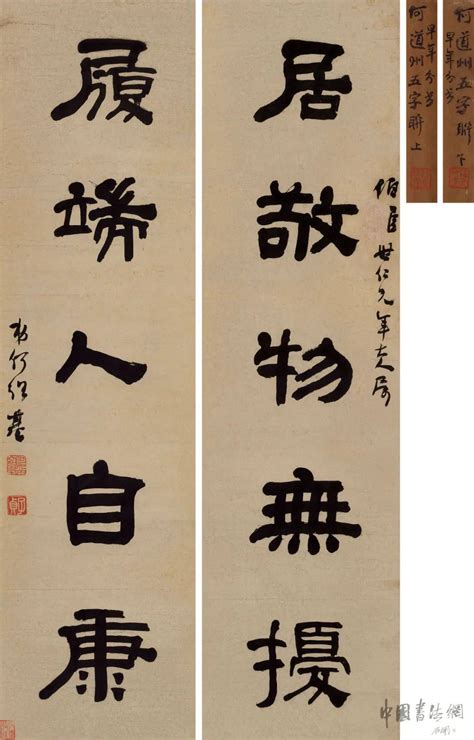 何道州五字聯下
早年分書
何道州五字聯上
早年分書
世仁兄年大人屬
居敬物無擾
履端人自康
弟何紹基
中國書法網